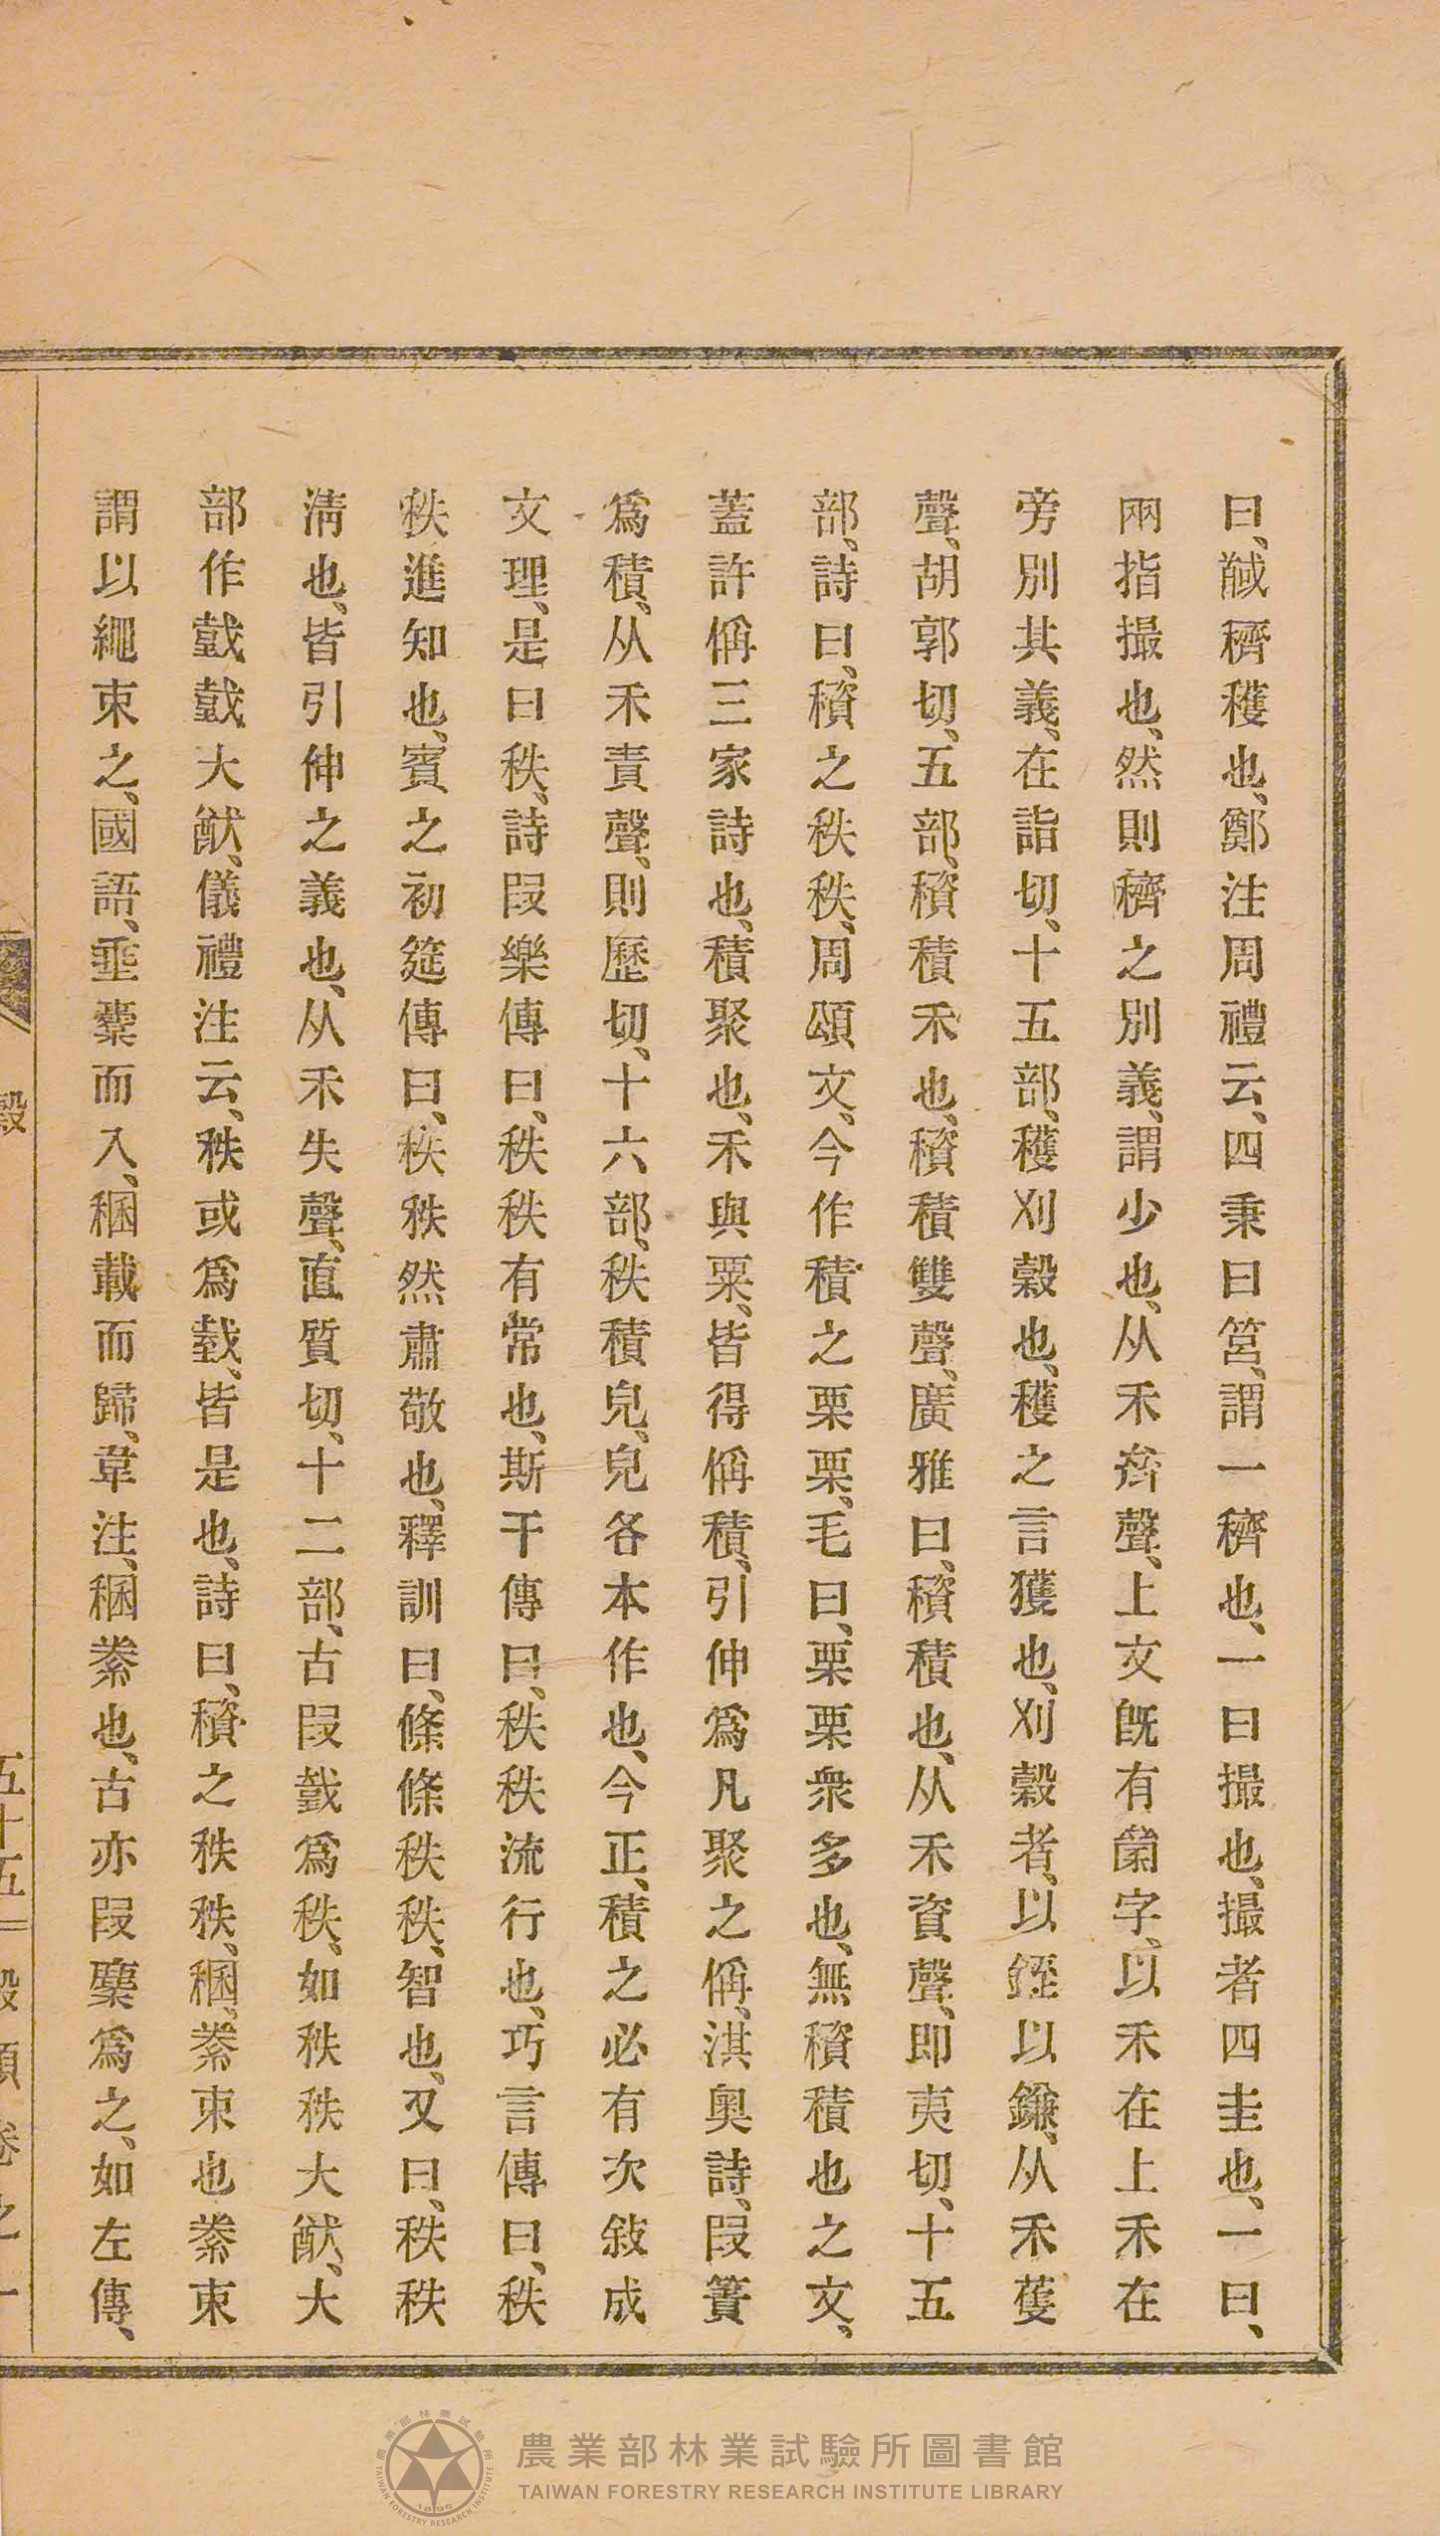 曰、䤋穧穫也、鄭注周禮云、四秉曰筥、謂一穧也、一曰撮也、撮者四圭也、一曰、
兩指撮也、然則穧之別義、謂少也、从禾㕍聲、上文旣有𥝩字、以禾在上禾在
旁別其義、在詣切、十五部、穫刈穀也、穫之言獲也、刈穀者、以銍以鎌、从禾蒦
聲、胡郭切、五部、穦積禾也、穧積雙聲、廣雅曰、䅣積也、从禾資聲、即夷切、十五
部、詩曰、䅣之秩秩、周頌、文、今作積之栗栗、毛曰、栗栗衆多也、無䅣積也之文、
蓋許偁三家詩也、積聚也、禾與粟、皆得偁積、引伸爲凡聚之偁、淇奧詩、叚簀
爲積、从禾責聲、則歷切、十六部、秩積皃、皃各本作也、今正、積之必有次敍成
文理、是曰秩、詩叚樂傳曰、秩秩有常也、斯干傳曰、秩秩流行也、巧言傳曰、秩
秩進知也、賓之初筵傳曰、秩秩然肅敬也、釋訓曰、條條秩秩、智也、又曰、秩秩
淸也、皆引伸之義也、从禾失聲、直質切、十二部、古叚𢧜爲秩、如秩秩大猷、大
部作𢧤𢧤大猷、儀禮注云、秩或爲𢧜、皆是也、詩曰、䅣之秩秩、稛、絭束也絭束
謂以繩束之、國語、垂橐而入、稛載而歸、韋注、稛絭也、古亦叚麇爲之、如左傳、
穀
五十五
穀類卷之一
農業部林業試驗所圖書館
TAIWAN FORESTRY RESEARCH INSTITUTE LIBRARY
農業部林業試驗所
TAIWAN FORESTRY RESEARCH INSTITUTE
1895